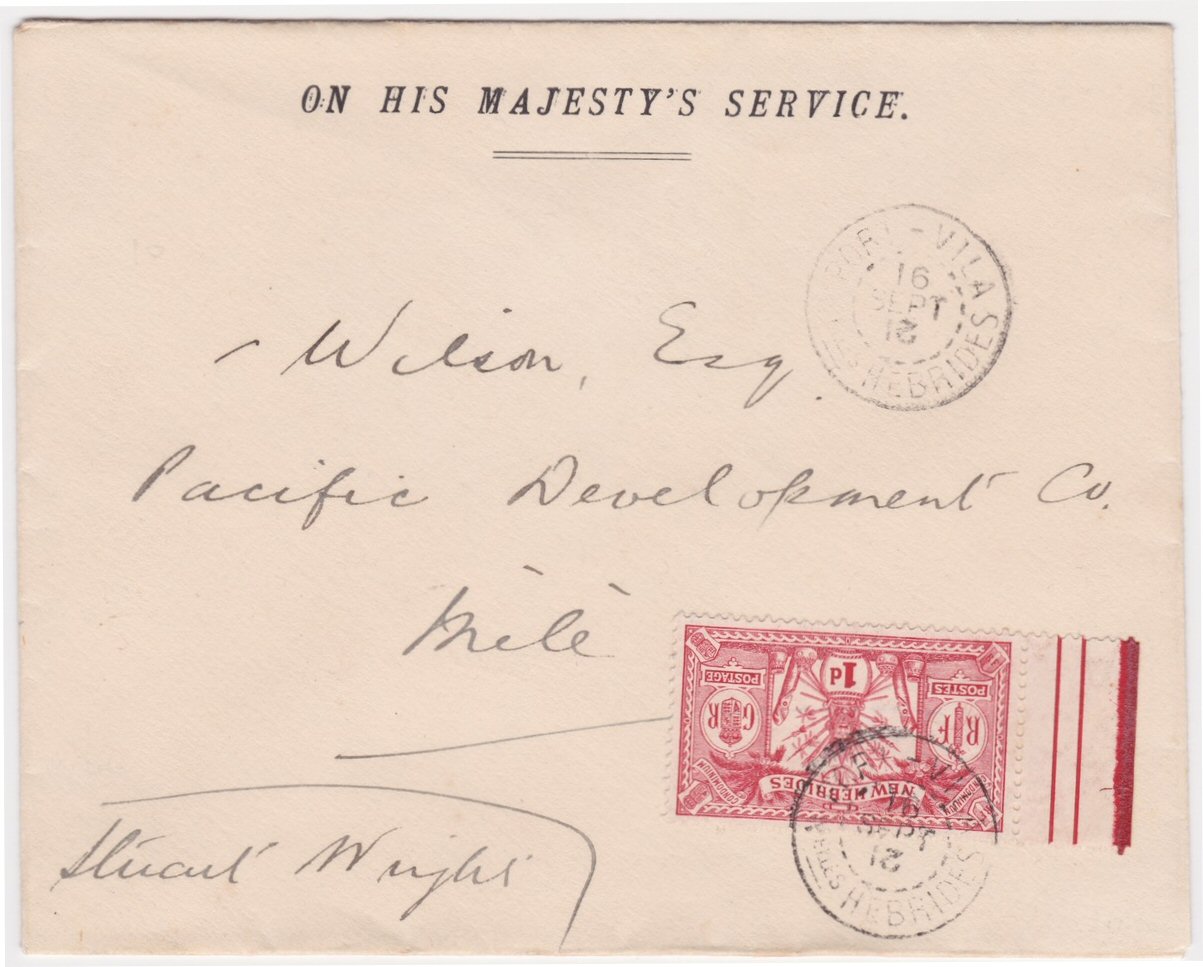 ON HIS MAJESTY'S SERVICE.
PORT-VILA
16
SEPT
HEBRIDES
Wilson, Esq.
Pacific Development Co.
Mélé
Stuart Wright
1d
POSTAGE
POSTES
G R
R F
CONDOMINIUM
NEW HEBRIDES
16
SEPT
HEBRIDES